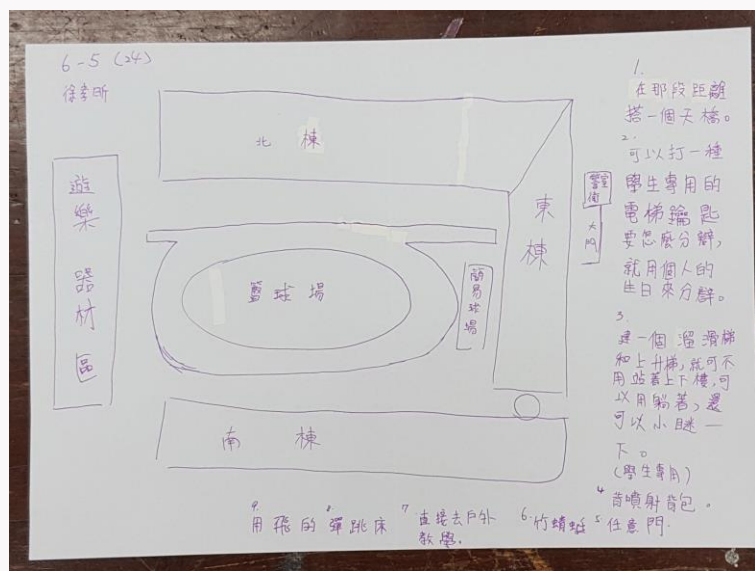 6-5 (24)
北棟
遊樂器材區
籃球場
簡易球場
東棟
警衛室
大門
南棟
1.
在那段距離
搭一個天橋。
2.
可以打一種
學生專用的
電梯鑰匙
要怎麼分辨,
就用個人的
生日來分辨。
3.
建一個溜滑梯
和上升梯,就可不
用站著上下樓,可
以用躺著,還
可以小瞇一
下。
(學生專用)
4.背噴射背包。
5.任意門.
6.竹蜻蜓
7.直接去戶外
教學。
8.彈跳床
9.用飛的